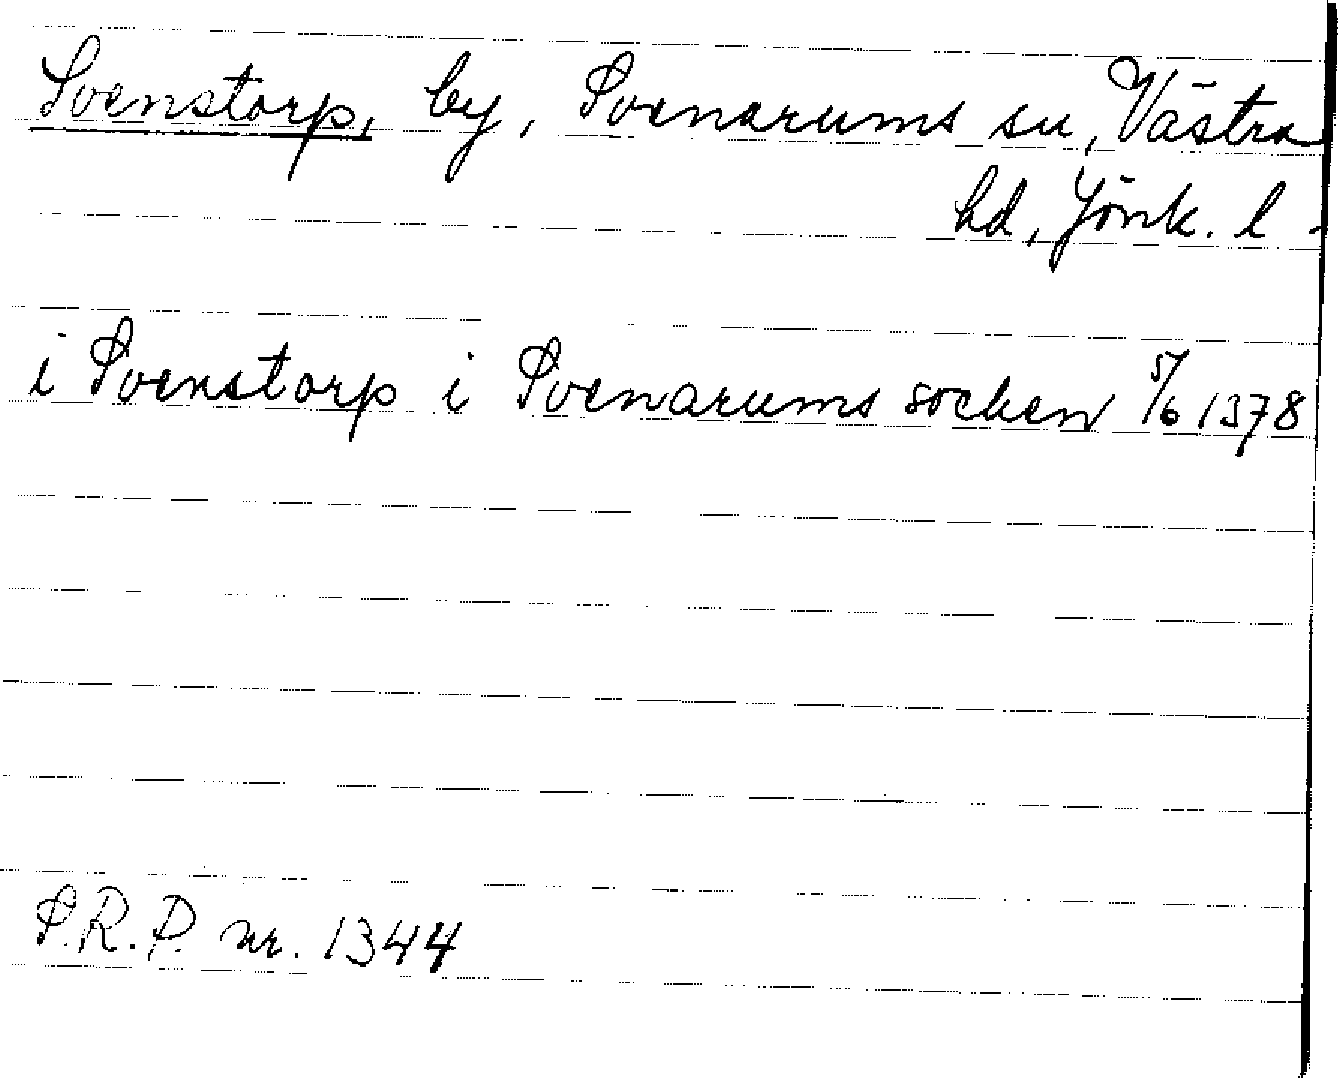 Svenstorp, by, Svenarums sn, Västra
hd, Jönk. l.
i Svenstorp i Svenarums socken 5/6 1378
S.R.P. nr. 1344